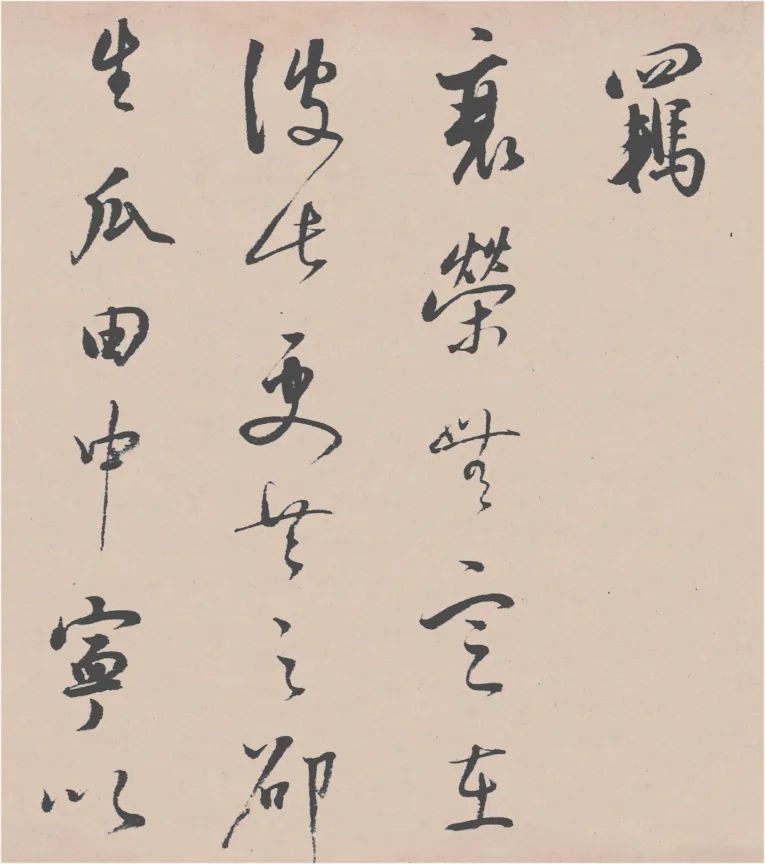 羈
衰榮無定在
彼此更共之邵
生瓜田中寧似